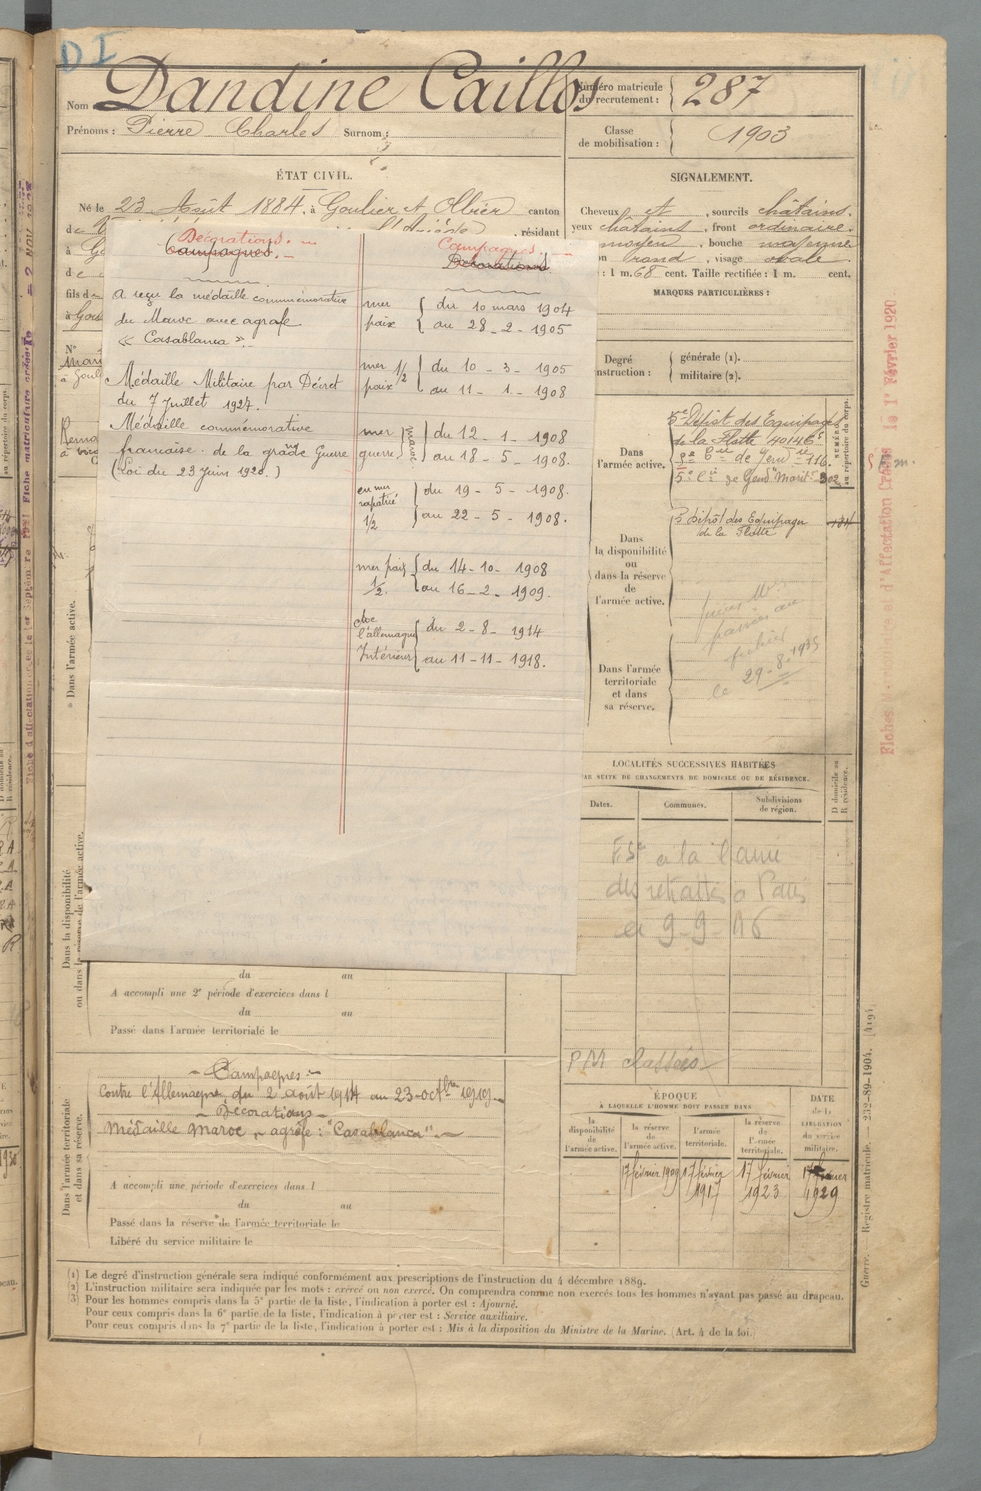 DI
Nom Dandine Caillos
Prénoms : Pierre Charles Surnom :
Numéro matricule du recrutement : 287
Classe de mobilisation : 1903
ÉTAT CIVIL.
Né le 23 Août 1884, à Goulier et Olbier canton
de
résidant
à Go
de
fils de
à Gou
N°
SIGNALEMENT.
Cheveux et , sourcils châtains.
yeux châtains , front ordinaire.
moyen , bouche moyenne
rond , visage ovale.
: 1 m. 68 cent. Taille rectifiée : 1 m. cent.
MARQUES PARTICULIÈRES :
Degré
générale (1).
militaire (2).
Décorations.
Campagnes.
A reçu la médaille commémorative
du Maroc avec agrafe
« Casablanca ».
Médaille Militaire par Décret
du 7 Juillet 1927.
Médaille commémorative
française de la grande Guerre
(Loi du 23 Juin 1920.)
Campagnes
Décorations
mer paix { du 10 mars 1904
au 28 - 2 - 1905
mer 1/2 paix } du 10 - 3 - 1905
au 11 - 1 - 1908
mer guerre } maroc { du 12 - 1 - 1908
au 18 - 5 - 1908.
en mer rapatrié 1/2 { du 19 - 5 - 1908.
au 22 - 5 - 1908.
mer paix 1/2. { du 14 - 10 - 1908
au 16 - 2 - 1909.
l'allemagne { du 2 - 8 - 1914
Intérieur { au 11 - 11 - 1918.
Dans l'armée active.
5e Dépôt des Equipages
de la Flotte 40146
de Gend 116.
5e Cie de Gend Marit 302
Dans la disponibilité ou dans la réserve de l'armée active.
5 dépôt des Equipages
de la Flotte
passées au
fichier
le 29-8-1935
Dans l'armée territoriale et dans sa réserve.
LOCALITÉS SUCCESSIVES HABITÉES
PAR SUITE DE CHANGEMENTS DE DOMICILE OU DE RÉSIDENCE.
Dates.
Communes.
Subdivisions de région.
D domicile ou
R résidence.
à la
des retraités à Paris
9-9-
PM classées
* Dans l'armée active.
Dans la disponibilité
ou dans la réserve de l'armée active.
du au
A accompli une 2e période d'exercices dans l
du au
Passé dans l'armée territoriale le
Dans l'armée territoriale
et dans sa réserve.
Campagnes :
Contre l'Allemagne du 2 août 1914 au 23 octbre 1919
Décorations
Médaille Maroc, agrafe : "Casablanca".
A accompli une période d'exercices dans l
du au
Passé dans la réserve de l'armée territoriale le
Libéré du service militaire le
ÉPOQUE
À LAQUELLE L'HOMME DOIT PASSER DANS
la disponibilité de l'armée active.
la réserve de l'armée active.
l'armée territoriale.
la réserve de l'armée territoriale.
DATE de la LIBÉRATION du service militaire.
17 février 1909
17 février 1917
17 février 1923
17 février 1929
(1) Le degré d'instruction générale sera indiqué conformément aux prescriptions de l'instruction du 4 décembre 1889.
(2) L'instruction militaire sera indiquée par les mots : exercé ou non exercé. On comprendra comme non exercés tous les hommes n'ayant pas passé au drapeau.
(3) Pour les hommes compris dans la 5e partie de la liste, l'indication à porter est : Ajourné.
Pour ceux compris dans la 6e partie de la liste, l'indication à porter est : Service auxiliaire.
Pour ceux compris dans la 7e partie de la liste, l'indication à porter est : Mis à la disposition du Ministre de la Marine. (Art. 4 de la loi.)
Guerre. Registre matricule. — 232-89-1904. [4194]
le 1er Février 1920